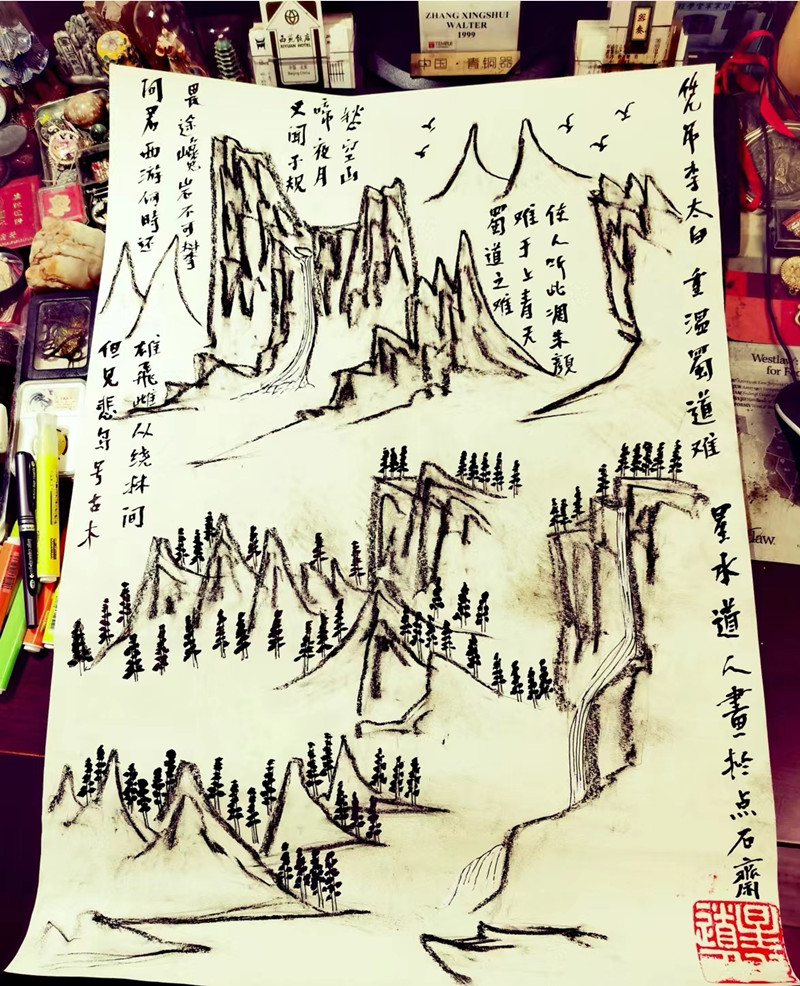 西苑饭店
XIYUAN HOTEL
ZHANG XINGSHUI
WALTER
1999
中国·青铜器
问君西游何時还
畏途巉岩不可攀
但見悲鸟号古木
雄飛雌从绕林间
又闻子规
啼夜月
愁空山
蜀道之难
难于上青天
佳人听此凋朱颜
凭弔李太白 重温蜀道难
星水道人畫於点石齋
Westlaw
for
law